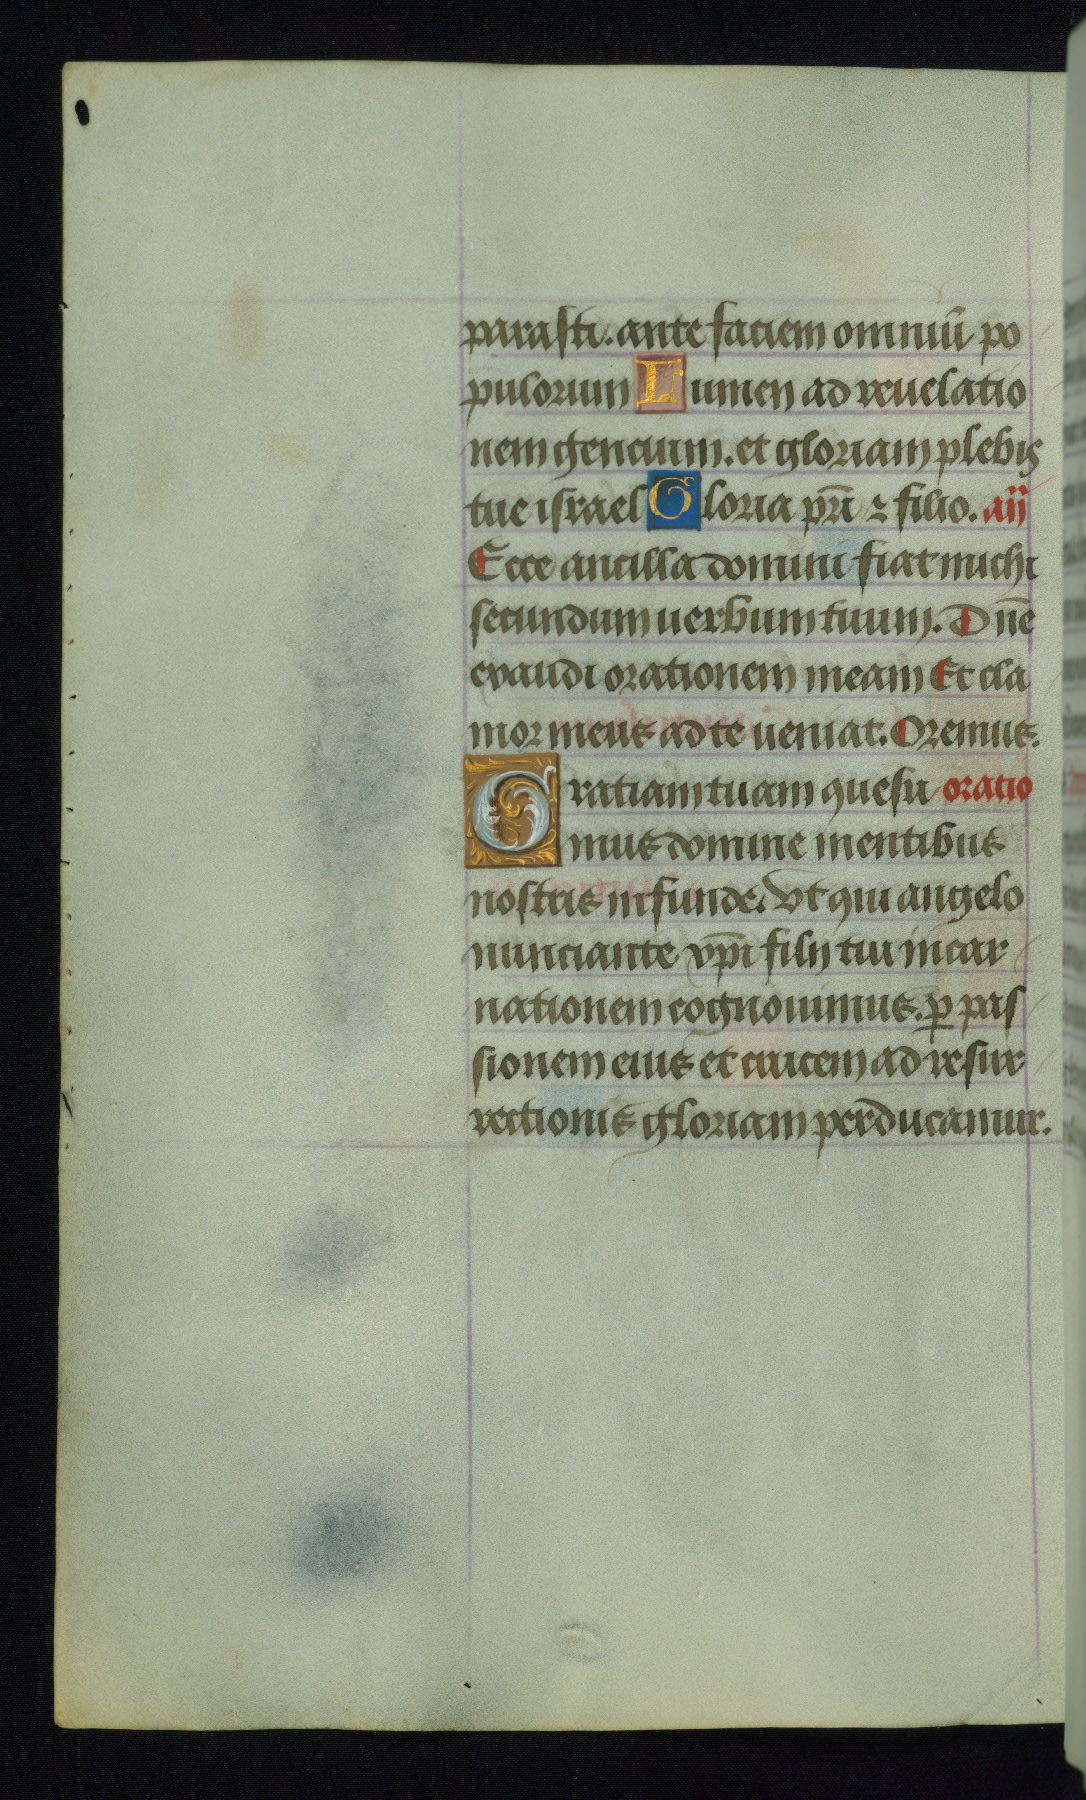 parasti. ante faciem omniū po
pulorum Lumen ad reuelatio
nem gencium. et gloriam plebis
tue israel Gloria pr̄i ⁊ filio. añ
Ecce ancilla domini fiat michi
secundum uerbum tuum. Dn̄e
exaudi orationem meam Et cla
mor meus ad te ueniat. Oremus.
Gratiam tuam quesu oratio
mus domine mentibus
nostris infunde. Vt qui angelo
nunciante xp̄i filij tui incar
nationem cognouimus. ꝑ pas
sionem eius et crucem ad resur
rectionis gloriam perducamur.